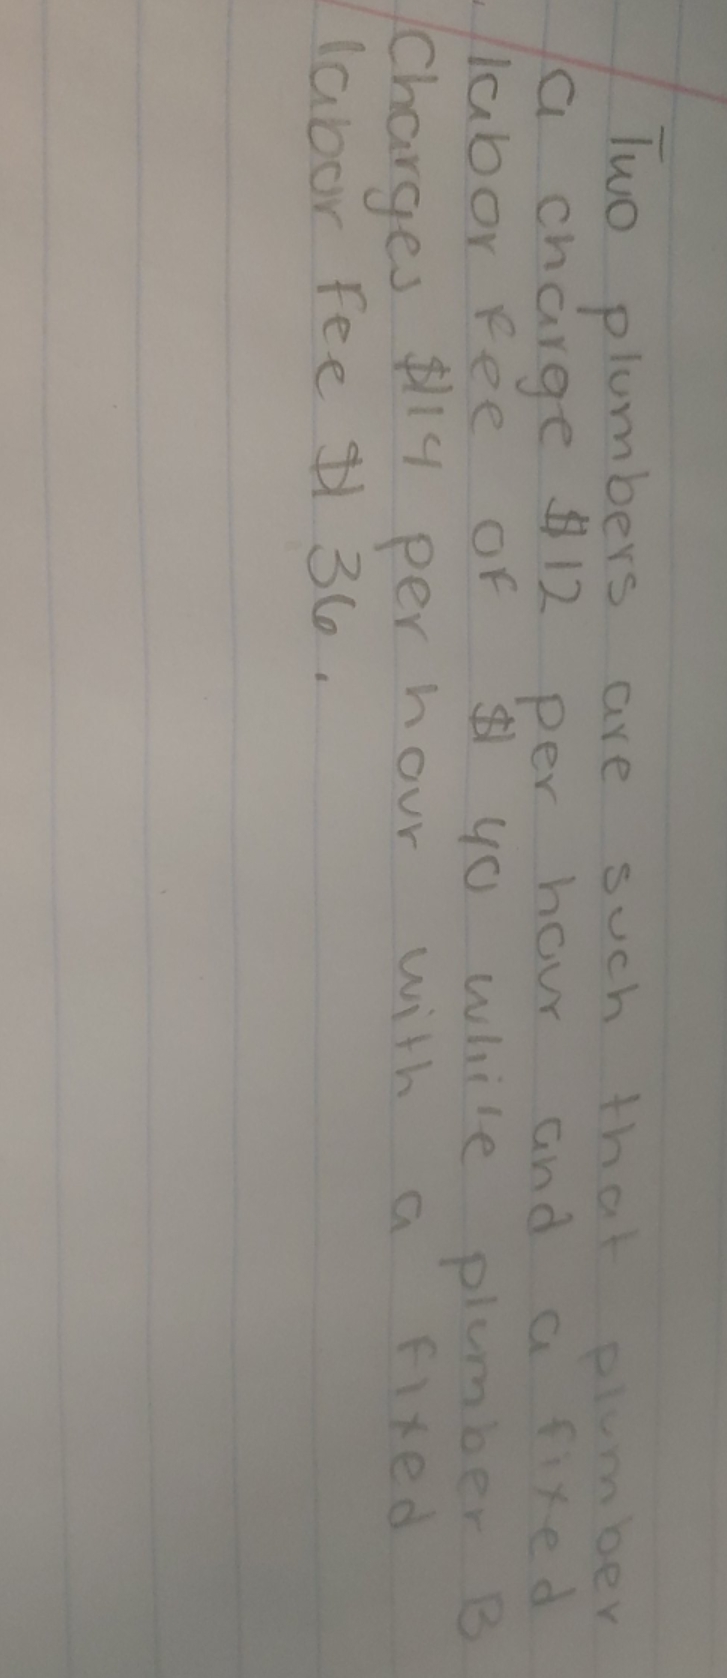 Two plumbers are such that plumber
a charge $12 per hour and a fixed
labor fee of $ 40 while plumber B
charges $14 per hour with a fixed
labor fee $ 36.